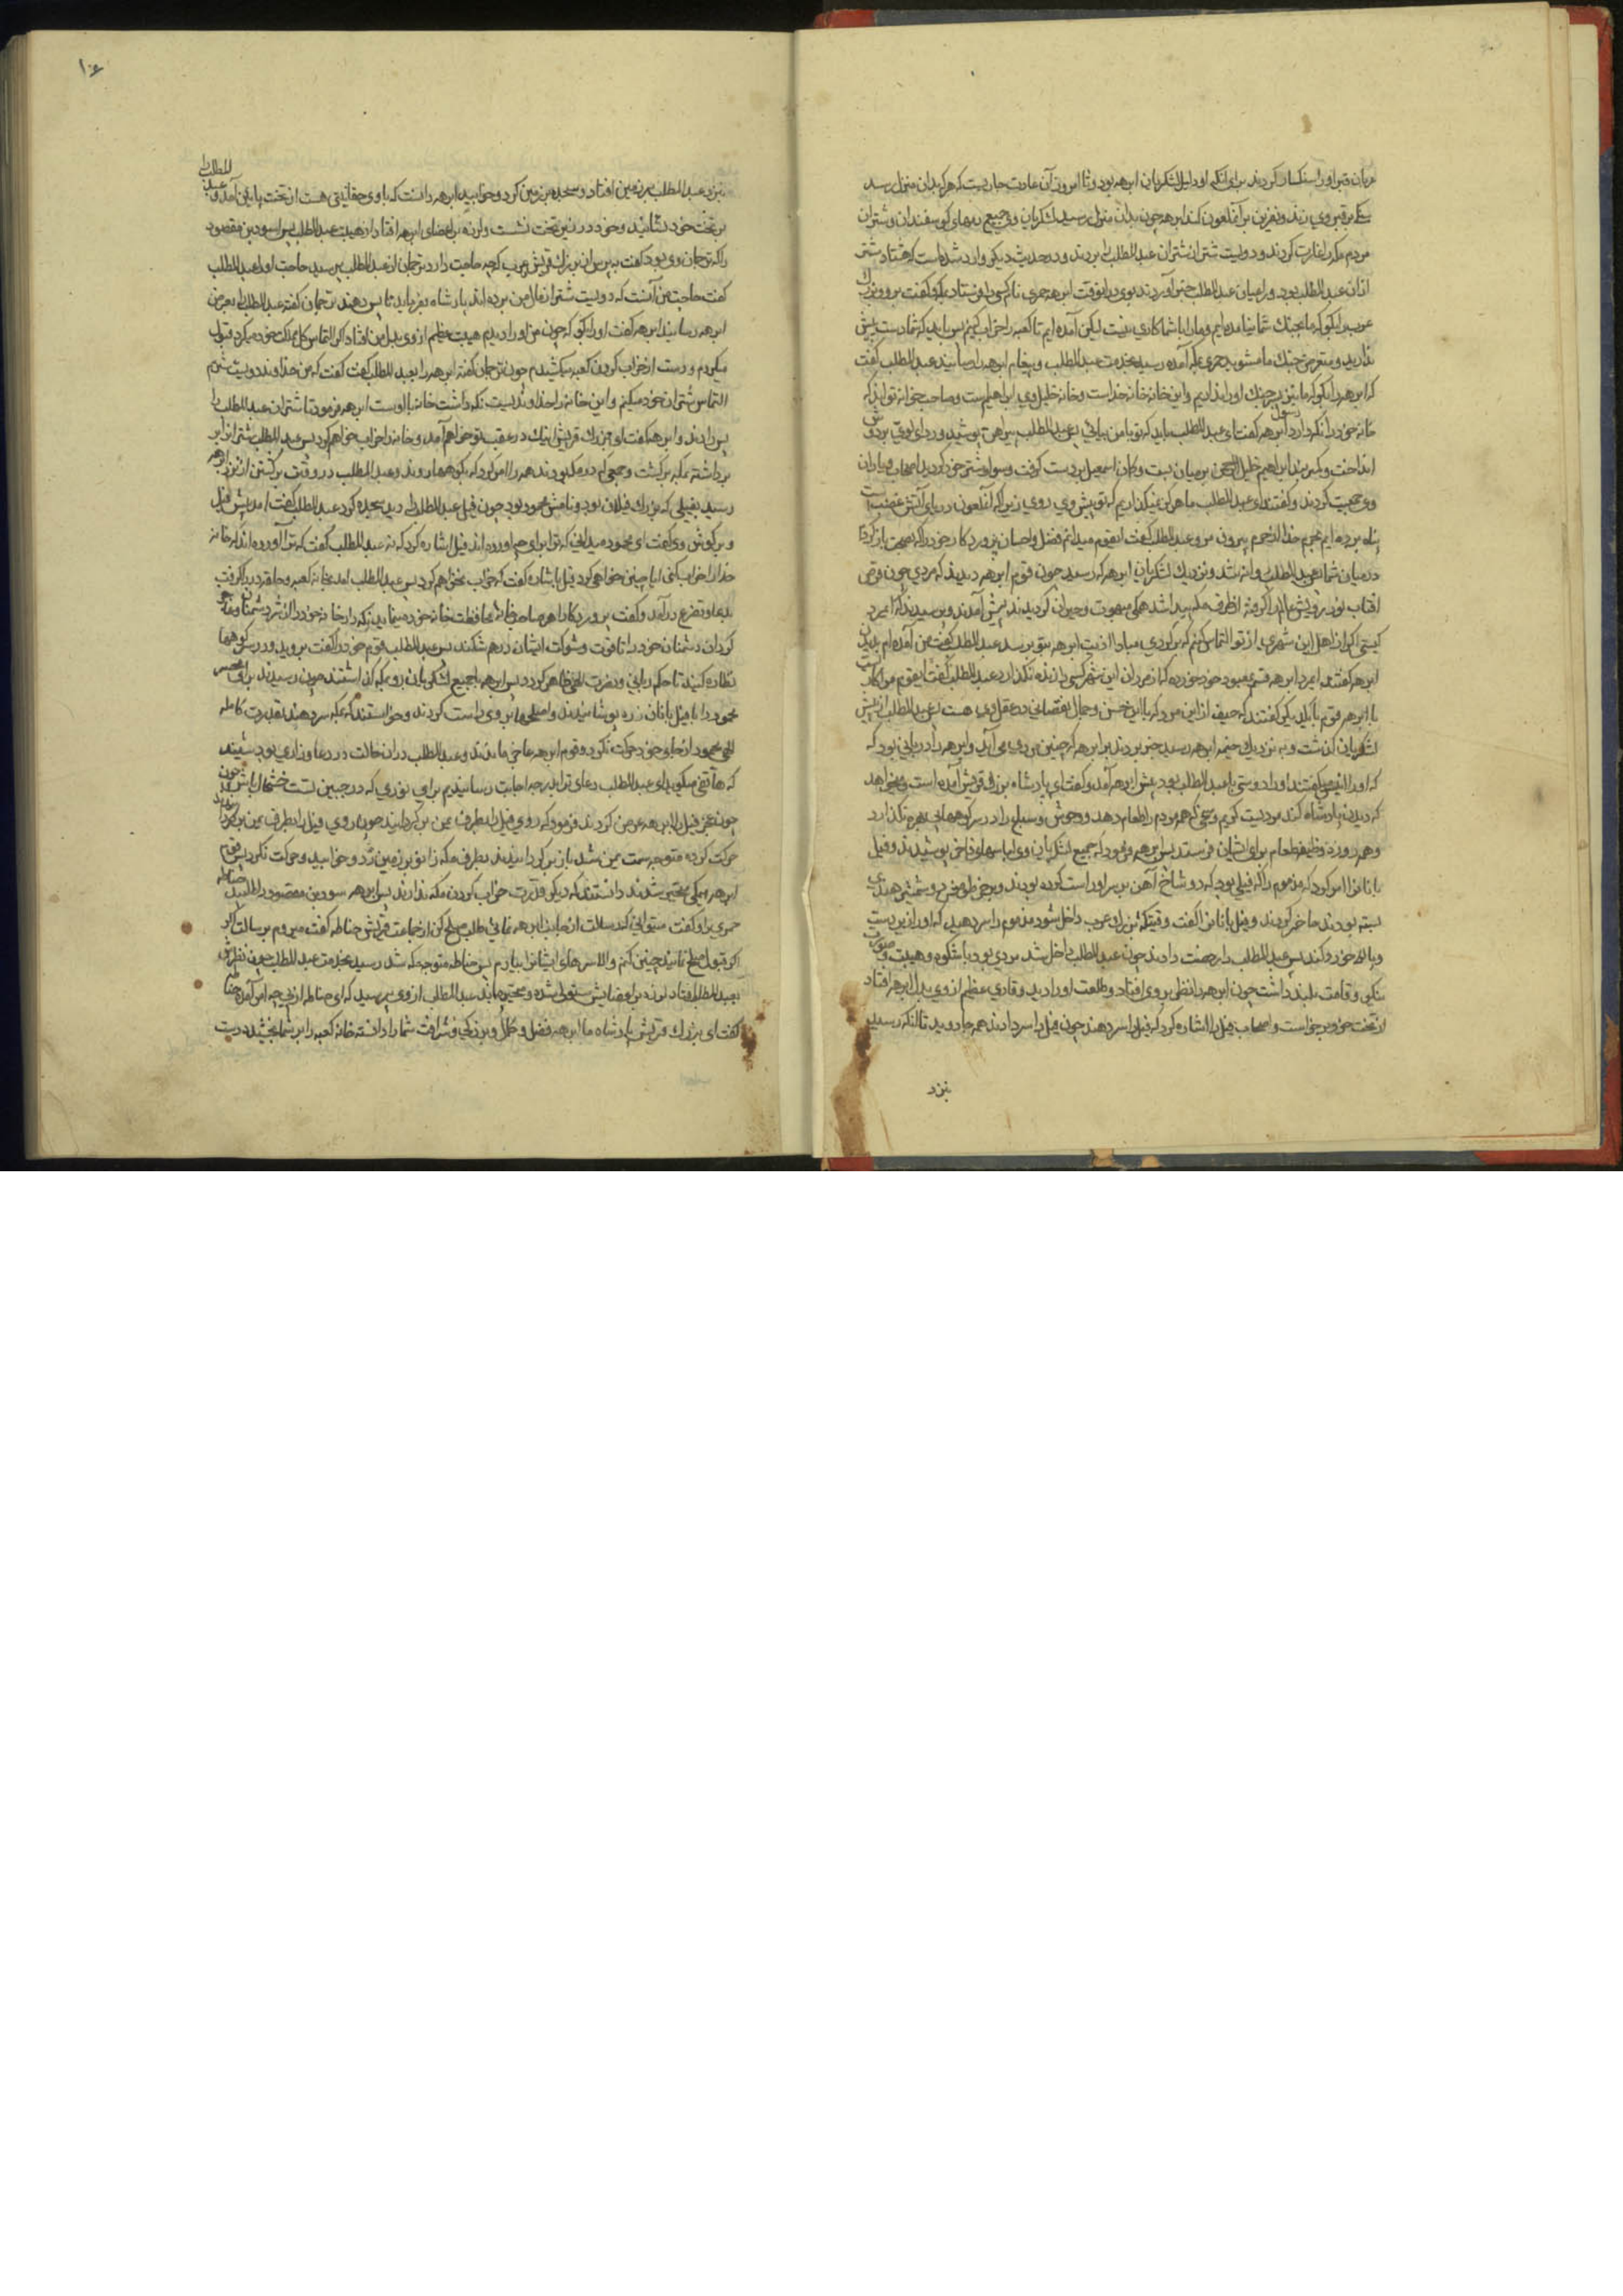 مردمان قبر او را سنکسار کردند برای انکه او دلیل لشکریان ابرهه بود و تا امروز آن عادت جاریست که هر که بدان منزل رسد
سنکی بر قبر وی زند و نفرین بر آنملعون کند ابرهه چون بدان منزل رسید لشکریان وی جمیع رمهای کوسفندان و شتران
مردم مکه را غارت کردند و دویست شتر از شتران عبدالمطلب را بردند و در حدیث دیکر وارد شده است که هشتاد شتر
ازان عبدالمطلب بود و راعیان عبدالمطلب خبر آوردند بوی در انوقت ابرهه حمیری نام کسی را فرستاد بمکه و کفت برو و بزرك
عرب را بکو که ما بجنك شما نیامده ایم و مارا با شما کاری نیست لیکن آمده ایم تا کعبه را خراب کنیم پس باید که شما دست پیش
ندارید و متعرض جنك ما مشوید حمیری بمکه آمده رسید بخدمت عبدالمطلب و پیغام ابرهه را رسانید عبدالمطلب کفت
که ابرهه را بکو که ما نیز سر جنك او را نداریم و این خانه خانه خداست و خانه خلیل وی ابراهیم است و صاحب خانه تواند که
خانه خود را نکه دارد رسول ابرهه کفت ای عبدالمطلب باید که تو با من بیائی پس عبدالمطلب پیراهن پوشید و ردای لوی بر دوش
انداخت و کمربند ابراهیم خلیل الرحمن بر میان بست و کمان اسمعیل بر دست کرفت و سوار شتر خود کردید اصحاب و یاران
وی جمعیت کردند و کفتند ای عبدالمطلب ما هرکز نمیکذاریم که تو پیش وی روی زیرا که آنملعون دریای آتش غضب است
پناه برده ایم بحرم خدا از حرم بیرون مرو عبدالمطلب کفت ایقوم میدانم فضل و احسان پروردکار خود را که بصحت باز کردم
درمیان شما پس عبدالمطلب روانه شد و نزدیك لشکریان ابرهه که رسید چون قوم ابرهه دیدند که مردی چون قرص
افتاب نور رویش عالم را کرفته از طرف مکه پیدا شد همکی مبهوت و حیران کردیدند پیش آمدند و پرسیدند که ایمرد
کیستی اکر از اهل این شهری از تو التماس کنیم که برکردی مبادا اذیت ابرهه بتو برسد عبدالمطلب کفت من آمده ام بدیدن
ابرهه کفتند ایمرد ابرهه قسم بمعبود خود خورده که از مردان این شهر کسی را زنده نکذارد عبدالمطلب کفت ایقوم مرا کاریست
با ابرهه قوم با یکدیکر کفتند که حیف از این مرد که با این حسن و جمال نقصانی در عقل وی هست پس عبدالمطلب از پیش
لشکریان کذشت و به نزدیك خیمه ابرهه رسید خبر بردند بر ابرهه که چنین مردی می آید و ابرهه را دربانی بود که
که او را انیس میکفتند او را دوستی با عبدالمطلب بود پیش ابرهه آمد و کفت ای پادشاه بزرك قریش آمده است و میخواهد
که دیدن پادشاه کند مردیست کریم و سخی که همه مردم را طعام دهد و وحوش و سباع را در سر کوهها بی بهره نکذارد
و هر روزه وظیفه طعام برای ایشان فرستد پس ابرهه فرمود که جمیع لشکریان وی لباسهای فاخر پوشیدند و فیل
بانان را امر کرد که مذموم را که فیلی بود که دو شاخ آهن بر سر او راست کرده بودند و بر خرطومش دو شمشیر هندی
بسته بودند حاضر کردند و فیل بانان را کفت وقتیکه بزرك عرب داخل شود مذموم را سر دهید که او را زیر دست
و پا لاه خورد کند پس عبدالمطلب را رخصت دادند چون عبدالمطلب داخل شد مردی بود با شکوه و هیبت و صورت
نیکی و قامت بلند داشت چون ابرهه را نظر بر وی افتاد و طلعت او را دید وقاری عظیم از وی بدل ابرهه افتاد
از تخت خود برخواست و اصحاب فیل را اشاره کرد که فیل را سر دهند چون فیل را سر دادند همه جا دوید تا انکه رسید
نزد
۱۰۶
نزد عبدالمطلب بر زمین افتاد و سجده بر زمین کرد و خوابید ابرهه دانست که با وی حقانیتی هست از تخت پایین آمد و عبدالمطلب را
بر تخت خود نشانید و خود در زیر تخت نشست و لرزه بر اعضای ابرهه افتاد از هیبت عبدالمطلب پس اسود بن مقصود
را که ترجمان وی بود کفت بپرس از بزرك قریش و عرب که چه حاجت دارد ترجمان از عبدالمطلب پرسید حاجت او را عبدالمطلب
کفت حاجت من آنست که دویست شتر از غلامان من برده اند پادشاه بفرماید تا پس دهند ترجمان کفته عبدالمطلب را بعرض
ابرهه رسانید ابرهه کفت او را بکو که چون من او را دیدم هیبت عظیم از وی بدل من افتاد اکر التماس کل مملکت خود میکرد قبول
میکردم و دست از خراب کردن کعبه میکشیدم چون ترجمان کفته ابرهه را بعبدالمطلب کفت کفت که من خداوند دویست شترم
التماس شتران خود میکنم و این خانه را خداوندیست نکه داشت خانه با اوست ابرهه فرمود تا شتران عبدالمطلب را
پس دادند و ابرهه کفت ای بزرك قریش اینك در عقب تو خواهم آمد و خانه را خراب خواهم کرد پس عبدالمطلب شتران را
برداشته بمکه برکشت و جمعی که در مکه بودند همه را امر کرد که بکوهها روند و عبدالمطلب در وقت برکشتن از نزد ابرهه
رسید بفیلی که بزرك فیلان بود و نامش محمود بود چون فیل عبدالمطلب را دید سجده کرد عبدالمطلب کفت آمد پیش فیل
و بر کوش وی کفت ای محمود میدانی که ترا برای چه آورده اند فیل اشاره کرد که نه عبدالمطلب کفت که ترا آورده اند که خانه
خدا را خراب کنی ایا چنین خواهی کرد فیل باشاره کفت که خراب نخواهم کرد پس عبدالمطلب آمد بخانه کعبه و حلقه در را کرفت
بدعا و تضرع درآمد و کفت پروردکارا هر صاحب خانه محافظت خانه خود مینماید نکه دار خانه خود را از شر دشمنان و مغلوب
کردان دشمنان خود را تا قوت و شوکت ایشان درهم شکند پس عبدالمطلب قوم خود را کفت بروید و در سر کوهها
نظاره کنید تا حکم ربانی و نصرت الهی ظاهر کردد پس ابرهه با جمیع لشکریان رو بمکه کذاشتند چون رسیدند بوادی محسر
محمود را با فیل بانان زره پوشانیدند و اصلحها بر وی راست کردند و خواستند که بمکه سر دهند بقدرت کامله
الهی محمود از جای خود حرکت نکرد و قوم ابرهه عاجز ماندند و عبدالمطلب دران حالت در دعا و زاری بود شنید
که هاتفی میکوید ای عبدالمطلب دعای ترا بدرجه اجابت رسانیدیم برای نوری که در جبین تست
چون عجز فیل را بابرهه عرض کردند فرمود که روی فیل را بطرف یمن برکردانید چون روی فیل را بطرف یمن برکردانید
حرکت کرده متوجه سمت یمن شد باز برکردانیدند بطرف مکه زانو بر زمین زد و خوابید و حرکت نکرد پس قوم
ابرهه همکی متحیر شدند دانستند که دیکر قدرت خراب کردن مکه ندارند پس ابرهه اسود بن مقصود را طلبید حناطه
حمیری را و کفت میتوانی که رسالت از جانب ابرهه نمائی طلب صلح کن از جماعت قریش حناطه کفت میروم برسالت
اکر قبول صلح نمایند چنین کنم والا سرهای ایشانرا بیارم پس حناطه متوجه مکه شد رسید بخدمت عبدالمطلب چون نظرش
بعبدالمطلب افتاد لرزه بر اعضایش مستولی شده و متحیر ماند عبدالمطلب از وی پرسید که ای حناطه از پی چه امر آمده حناطه
کفت ای بزرك قریش پادشاه ما ابرهه فضل و کمال و بزرکی و شرافت شما را دانسته خانه کعبه را بر شما بخشید